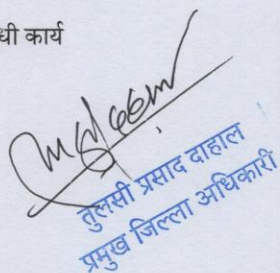 धी कार्य
तुलसी प्रसाद दाहाल
प्रमुख जिल्ला अधिकारी